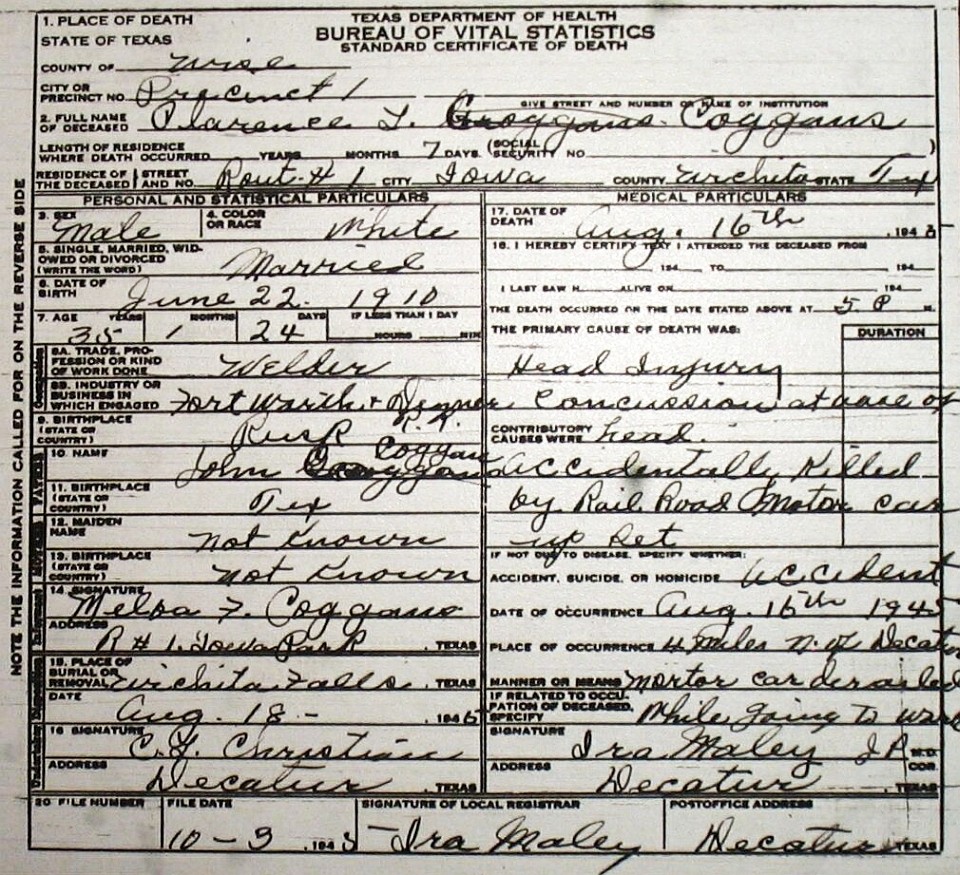 TEXAS DEPARTMENT OF HEALTH
BUREAU OF VITAL STATISTICS
STANDARD CERTIFICATE OF DEATH
1. PLACE OF DEATH
STATE OF TEXAS
COUNTY OF Wise
CITY OR PRECINCT NO. Precinct 1
GIVE STREET AND NUMBER OR NAME OF INSTITUTION
2. FULL NAME OF DECEASED Clarence T. Coggans
LENGTH OF RESIDENCE WHERE DEATH OCCURRED YEARS MONTHS 7 DAYS (SOCIAL SECURITY NO. )
RESIDENCE OF THE DECEASED STREET AND NO. Rout # 1 CITY Iowa COUNTY Wichita STATE Tex
PERSONAL AND STATISTICAL PARTICULARS
3. SEX Male 4. COLOR OR RACE White
5. SINGLE, MARRIED, WIDOWED OR DIVORCED (WRITE THE WORD) Married
6. DATE OF BIRTH June 22 - 1910
7. AGE YEARS 35 MONTHS 1 DAYS 24 IF LESS THAN 1 DAY HOURS MIN
8A. TRADE, PROFESSION OR KIND OF WORK DONE Welder
8B. INDUSTRY OR BUSINESS IN WHICH ENGAGED Fort Warth & Denver R.R.
9. BIRTHPLACE (STATE OR COUNTRY) Rusk
10. NAME John Coggans
11. BIRTHPLACE (STATE OR COUNTRY) Tex
12. MAIDEN NAME Not Known
13. BIRTHPLACE (STATE OR COUNTRY) Not Known
14. SIGNATURE Melba F. Coggans
ADDRESS R # 1. Iowa Park TEXAS
15. PLACE OF BURIAL OR REMOVAL Wichita Falls TEXAS
DATE Aug. 18 - 1945
16 SIGNATURE C.Y. Christian
ADDRESS Decatur TEXAS
MEDICAL PARTICULARS
17. DATE OF DEATH Aug. 16th 1945
18. I HEREBY CERTIFY THAT I ATTENDED THE DECEASED FROM
194 TO 194
I LAST SAW H ALIVE ON 194
THE DEATH OCCURRED ON THE DATE STATED ABOVE AT 5 P M.
THE PRIMARY CAUSE OF DEATH WAS: DURATION
Head Injury
Concussion at base of
CONTRIBUTORY CAUSES WERE head.
Accidentally Killed
by Rail Road Motor car
IF NOT DUE TO DISEASE, SPECIFY WHETHER:
ACCIDENT, SUICIDE, OR HOMICIDE Accident
DATE OF OCCURRENCE Aug. 16th 1945
PLACE OF OCCURRENCE 4 Miles N. of Decatur
MANNER OR MEANS Mortor car derailed
IF RELATED TO OCCUPATION OF DECEASED, SPECIFY While going to work
SIGNATURE Ira Maley J P M.D. COR.
ADDRESS Decatur TEXAS
20. FILE NUMBER FILE DATE SIGNATURE OF LOCAL REGISTRAR POSTOFFICE ADDRESS
10-3 1945 Ira Maley Decatur TEXAS
NOTE THE INFORMATION CALLED FOR ON THE REVERSE SIDE